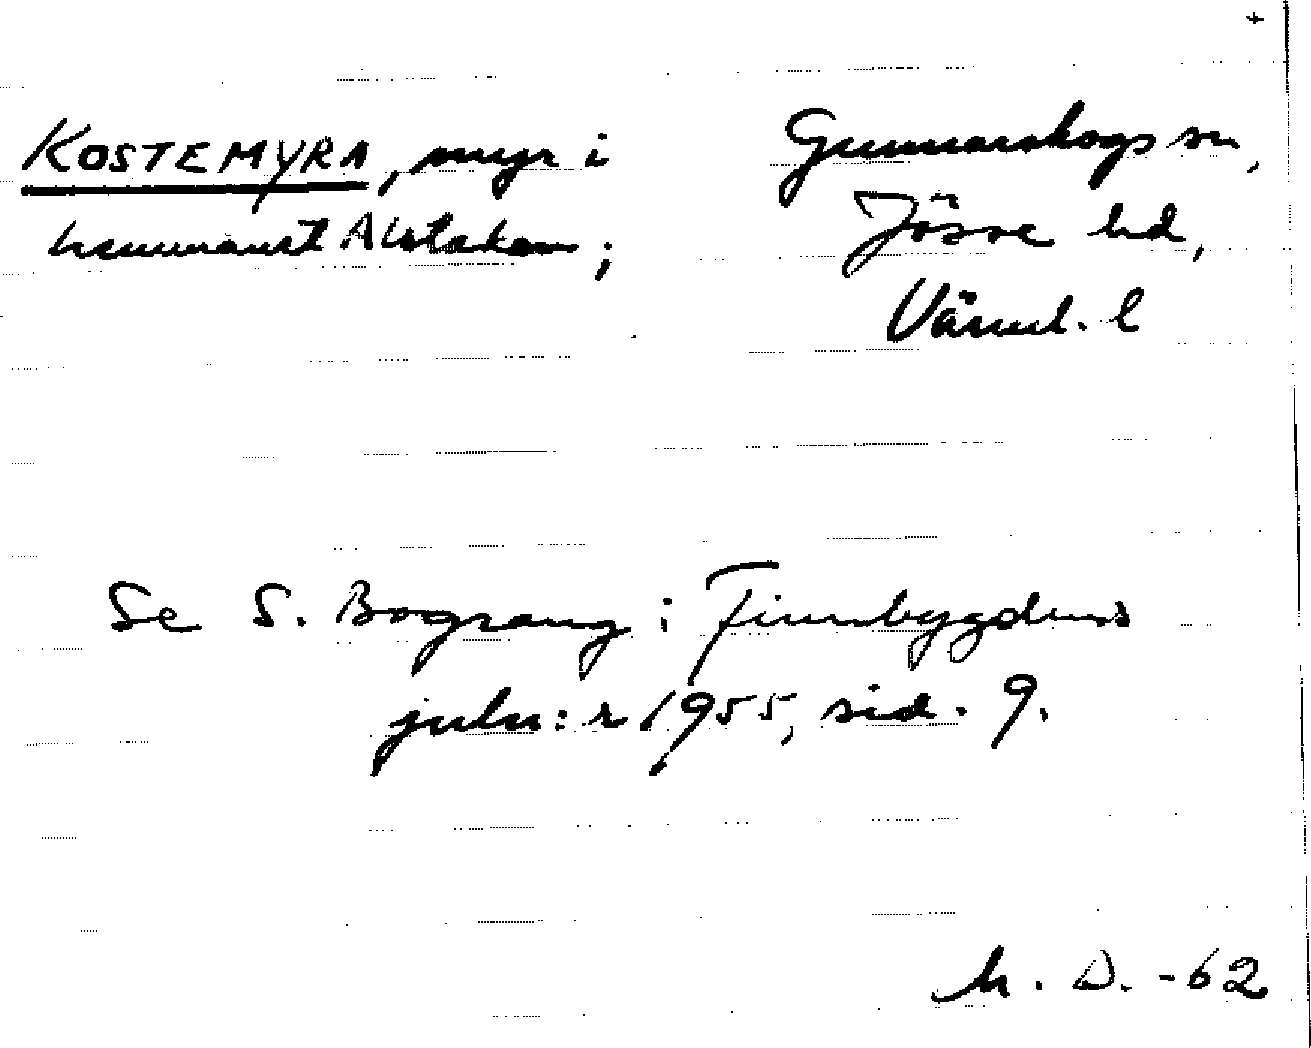 +
KOSTEMYRA, myr i Gunnarskogs sn,
hemmanet Jösse hd,
Värml. l
Se S. Bograng i Finnbygdens
julnr 1955, sid. 9.
D. -62